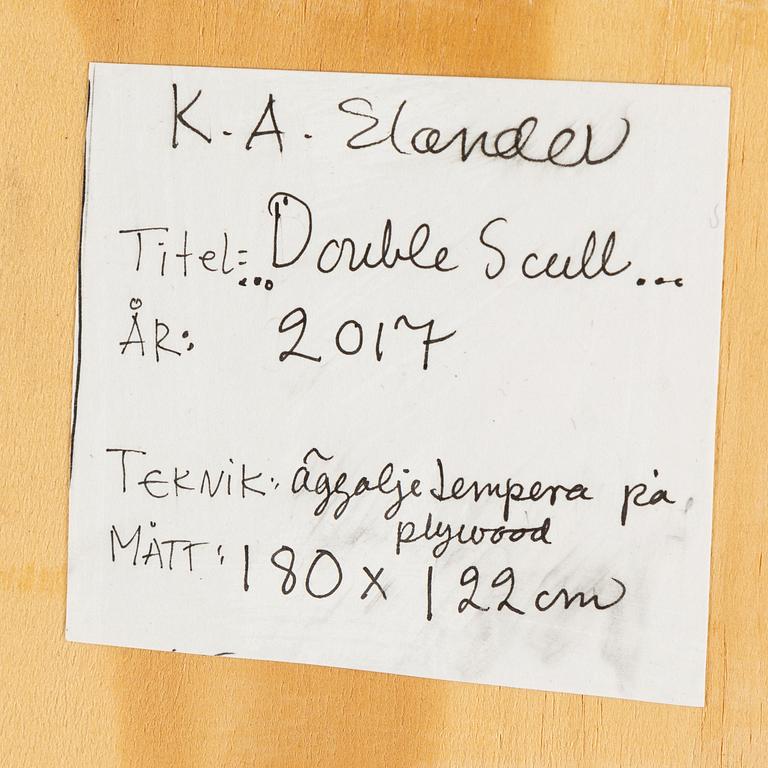 K. A. Elander
Titel: Double Scull...
ÅR: 2017
TEKNIK: äggoljetempera på
plywood
MÅTT: 180 x 122 cm